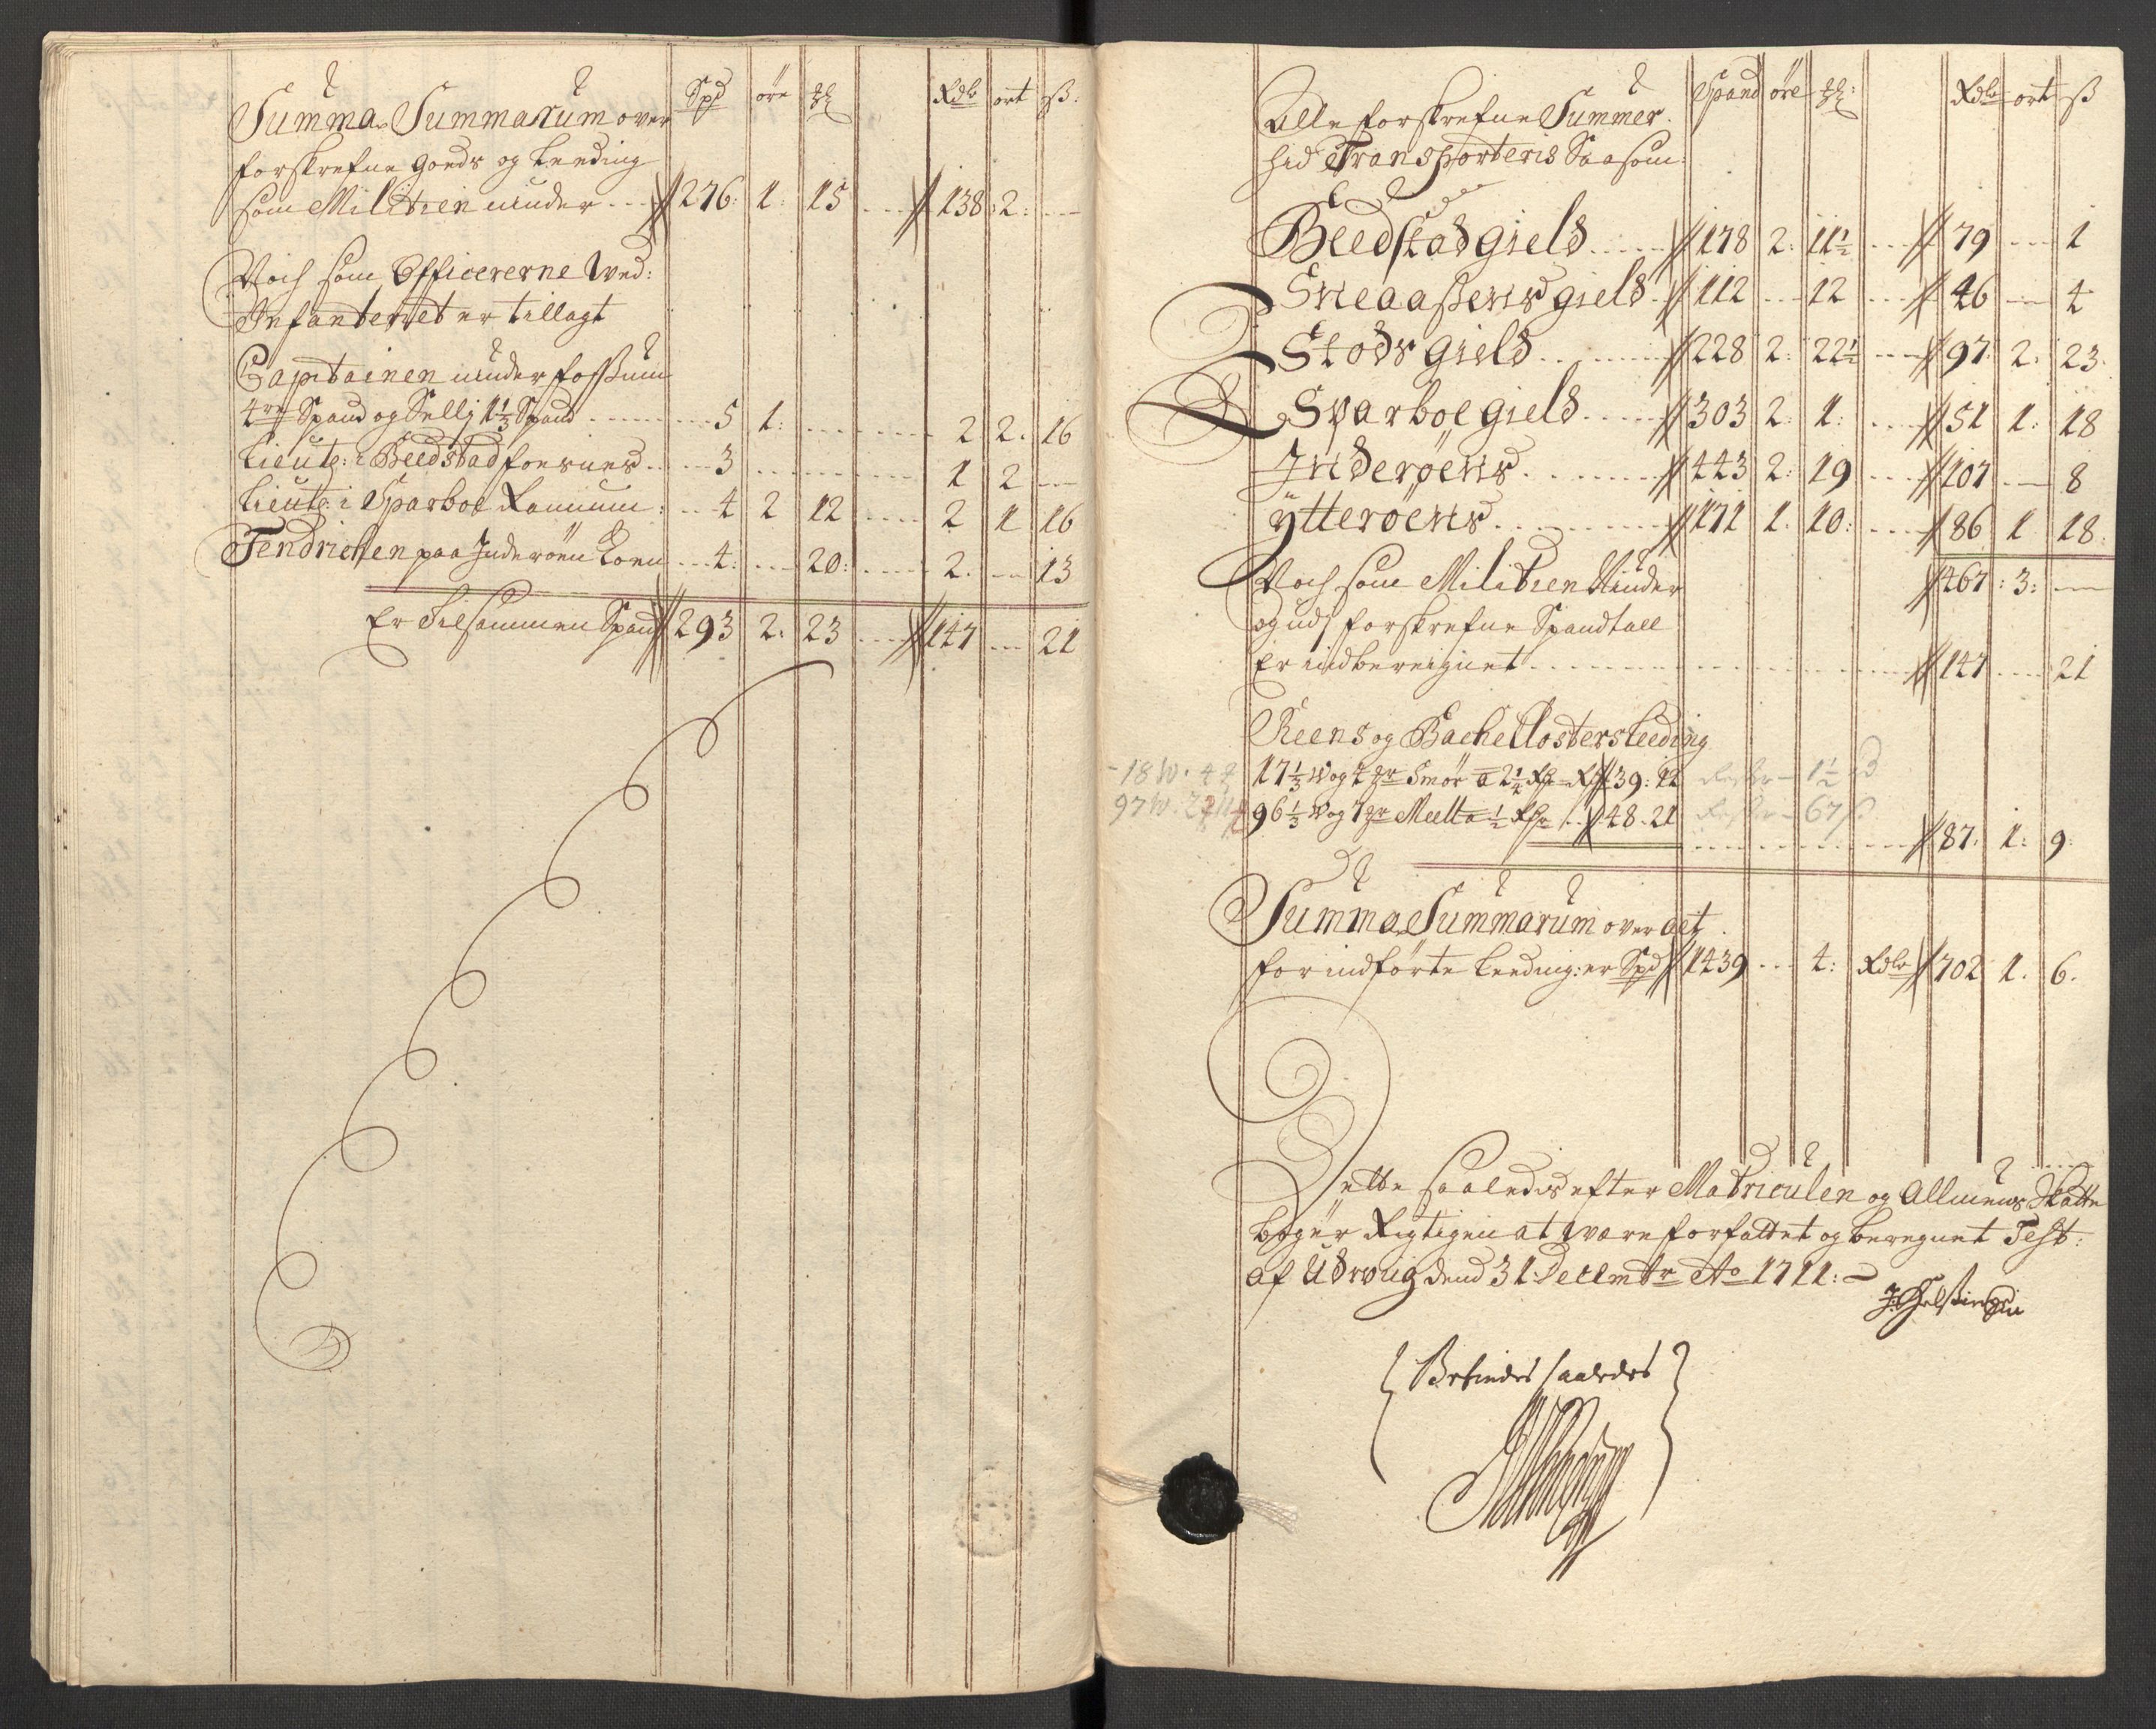 Spd öre Rdlr ort ß.
Summa Summarum over
forskrefne Goeds og Leeding
som Militien niuder 276: 1: 15 138: 2:
Noch som Officererne Wed:
Infanteriet er tillagt
Capitainen niuder fossum
4re Spand og Sellj 1 1/3 Spand 5 1: 2 2. 16
Lieut: i Beedstad foesnes 3 1 2
Lieut: i Sparboe Ramum: 4 2 12 2 1 16
Fendrichen paa Inderöen Loen 4: 20: 2. 13
Er Tilsammen Spand 293 2. 23 147 21
Spand öre Rdlr ort ß
Alle forskrefne Summer.
hid Transporteris Saasom:
Beedstad gield 178 2: 11 1/2 79 1
Sneaaßens gield 112 12 46 4
Stods gield 228 2: 22 1/2 97. 2. 23.
Sparboe gield 303 2: 1: 51 1: 18
Inderøens 443 2: 19 107 8
ÿtterøens 171 1. 10: 86 1 18.
467: 3:
Noch som Militien Niuder
og udj forskrefne Spandtall
Er indbereignet 147 21
Reens og Bache Closters Leeding
17 1/3 W og 2 pr Smör a 2 1/4 Rdr 39: 12
96 1/3 W og 1 pr Meel a 1/2 Rdr 48. 21
87. 1: 9.
Summa Summarum over alt
for indførte Leeding: er Spd 1439 4: Rdlr 702 1. 6.
Dette saaledis efter Matriculen og Allmens Skatte
bøger Rigtigen at være forfattet og beregnet Test:
af Udvug dend 31 Decembr Ao 1711:
Befindes saaledes